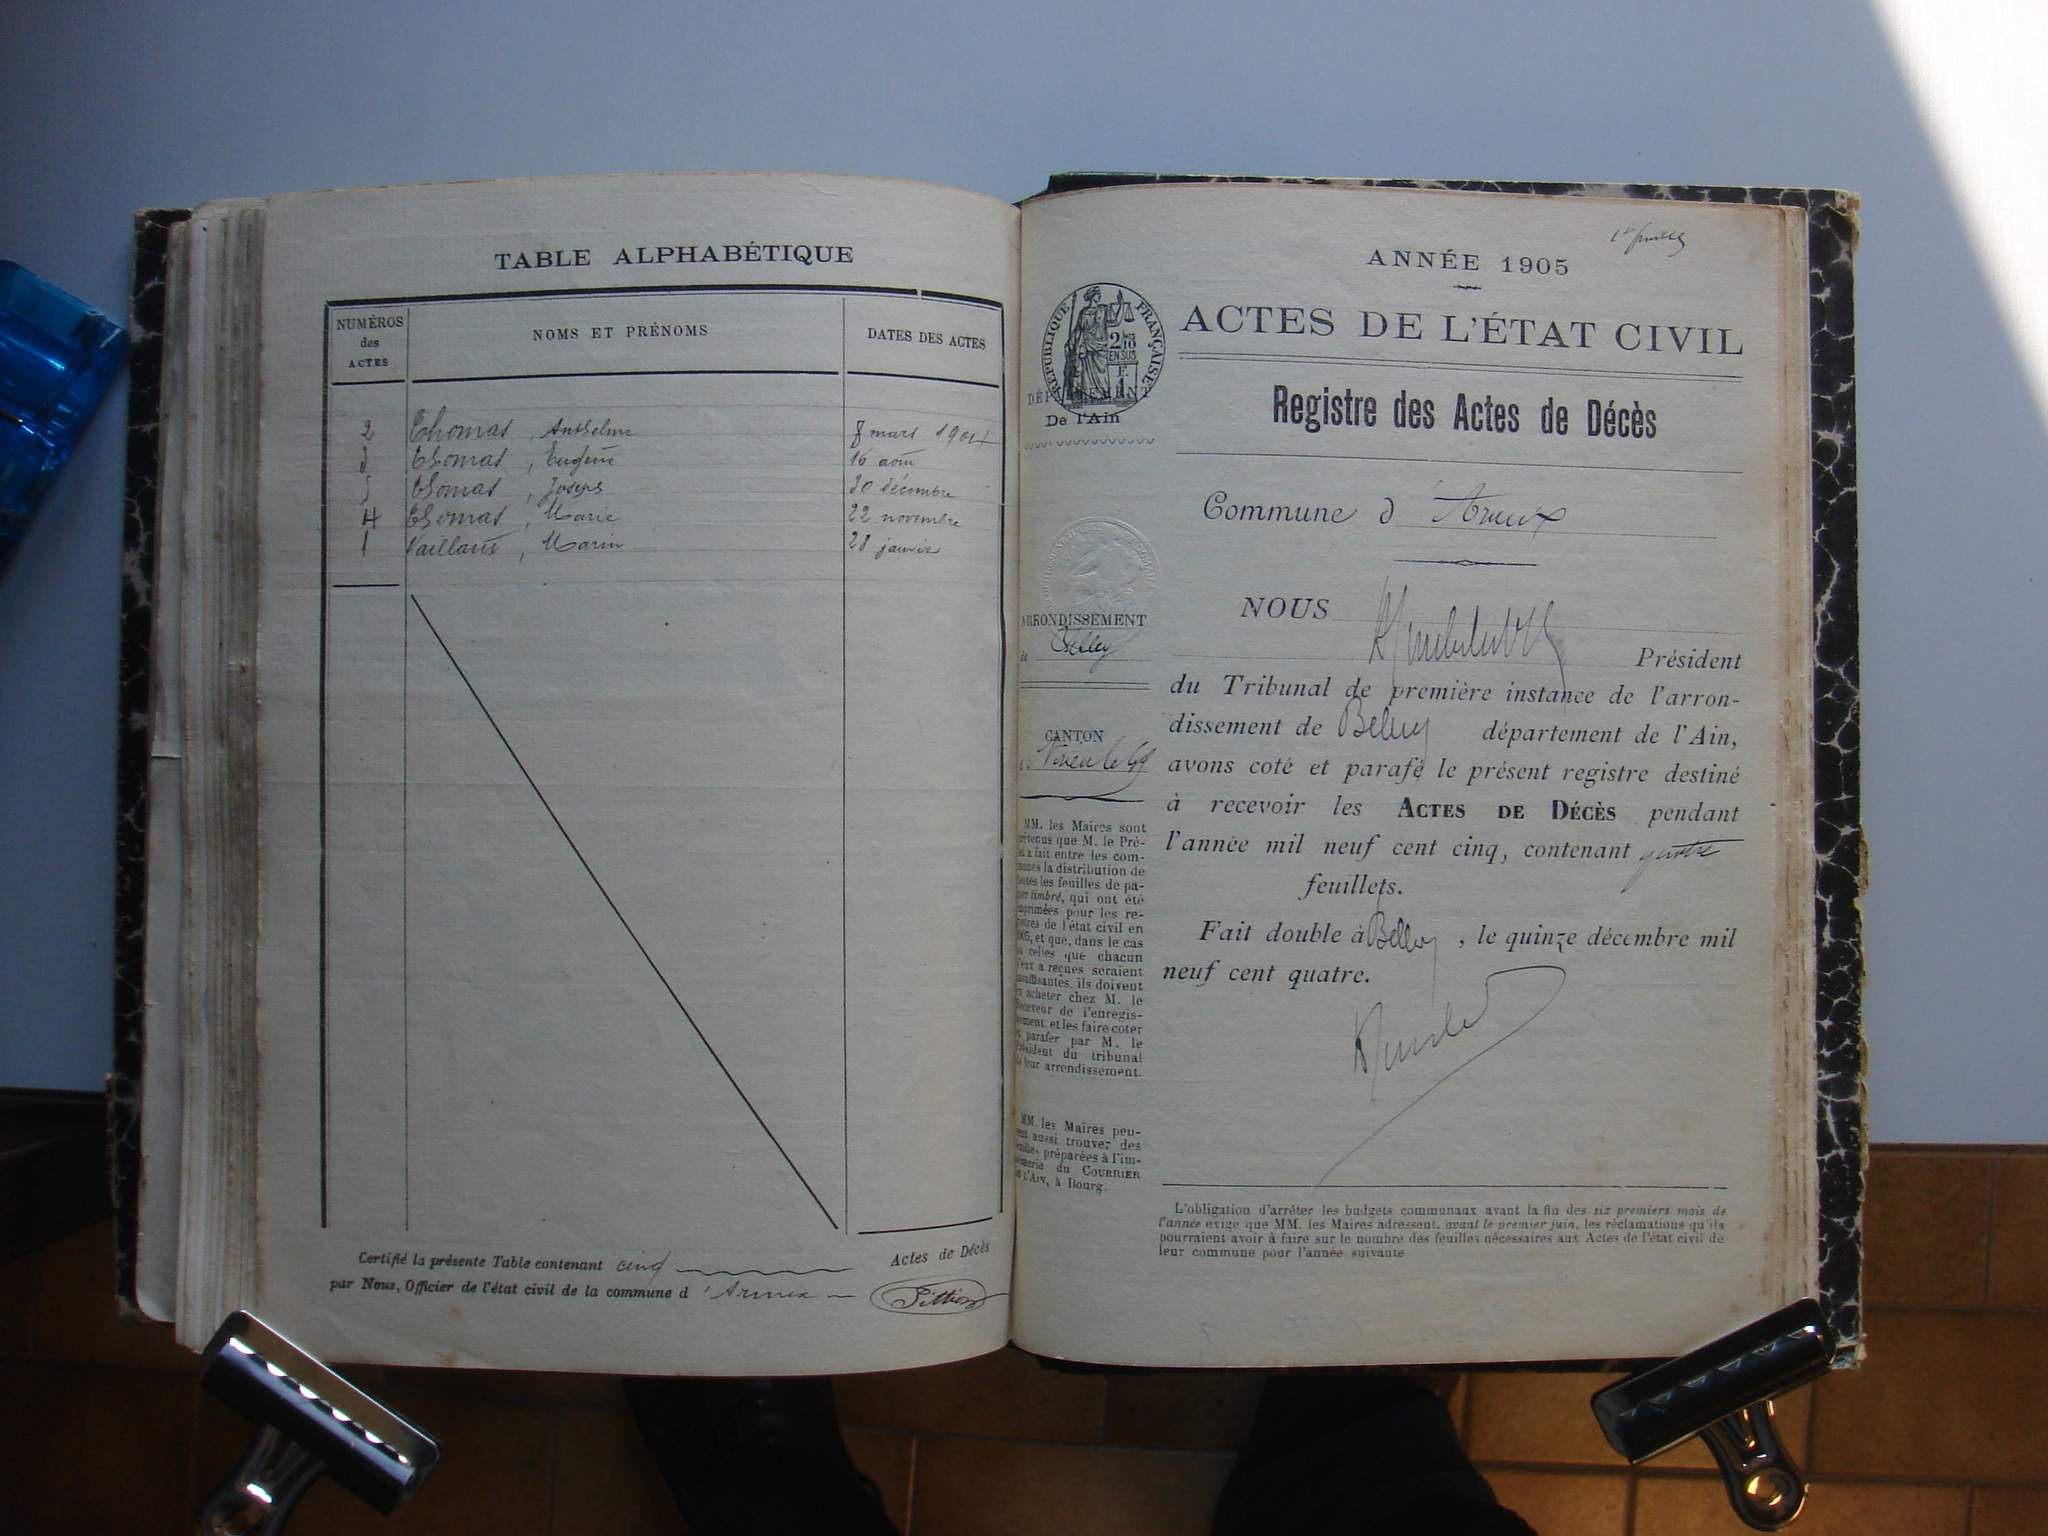 TABLE ALPHABÉTIQUE
NUMÉROS des ACTES
NOMS ET PRÉNOMS
DATES DES ACTES
2 Thomas, Anthelme 8 mars 1904
3 Thomas, Eugène 16 août
5 Thomas, Joseph 30 décembre
4 Thomas, Marie 22 novembre
1 Vaillant, Marin 28 janvier
Certifié la présente Table contenant cinq Actes de Décès
par Nous, Officier de l'état civil de la commune d'Armix
Pittion
ANNÉE 1905
ACTES DE L'ÉTAT CIVIL
RÉPUBLIQUE FRANÇAISE
DÉPARTEMENT
De l'Ain
Registre des Actes de Décès
Commune d'Armix
ARRONDISSEMENT
de Belley
CANTON
MM. les Maires sont
prévenus que M. le Pré-
fet a fait entre les com-
munes la distribution de
toutes les feuilles de pa-
pier timbré, qui ont été
imprimées pour les re-
gistres de l'état civil en
1905, et que, dans le cas
où celles que chacun
d'eux a reçues seraient
insuffisantes, ils doivent
en acheter chez M. le
Receveur de l'enregis-
trement, et les faire coter
et parafer par M. le
Président du tribunal
de leur arrondissement.
MM. les Maires peu-
vent aussi trouver des
feuilles préparées à l'im-
primerie du COURRIER
DE L'AIN, à Bourg.
NOUS
Président
du Tribunal de première instance de l'arron-
dissement de Belley département de l'Ain,
avons coté et parafé le présent registre destiné
à recevoir les ACTES DE DÉCÈS pendant
l'année mil neuf cent cinq, contenant quatre
feuillets.
Fait double à Belley, le quinze décembre mil
neuf cent quatre.
L'obligation d'arrêter les budgets communaux avant la fin des six premiers mois de
l'année exige que MM. les Maires adressent, avant le premier juin, les réclamations qu'ils
pourraient avoir à faire sur le nombre des feuilles nécessaires aux Actes de l'état civil de
leur commune pour l'année suivante